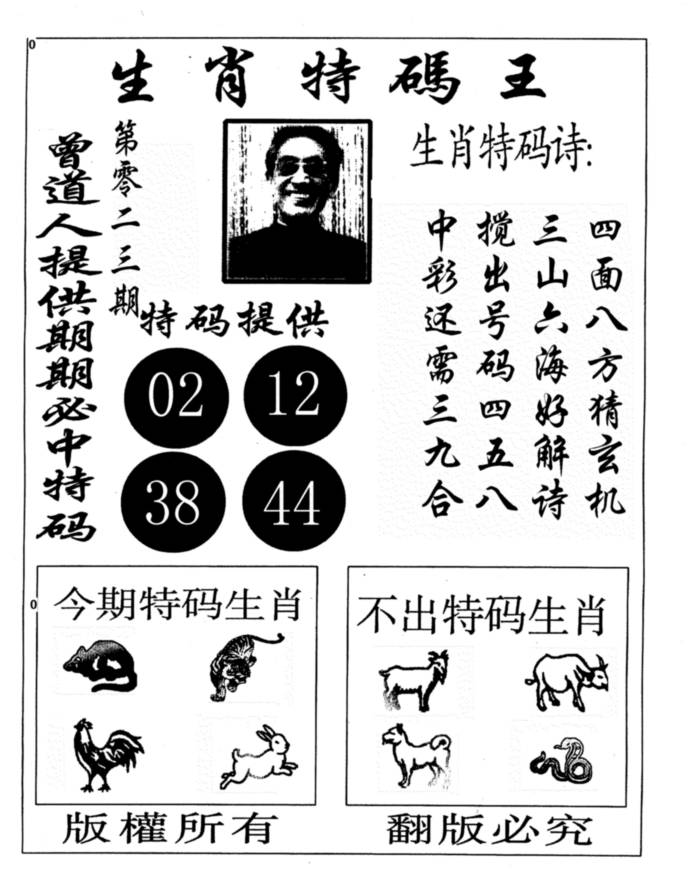 0
生肖特碼王
曾道人提供期期必中特码
第零二三期
生肖特码诗:
四面八方猜玄机
三山六海好解诗
搅出号码四五八
中彩还需三九合
特码提供
02 12
38 44
0
今期特码生肖
不出特码生肖
版權所有
翻版必究